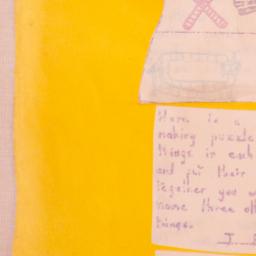 Here is a
making puzzle
things in each
and put their
together you w
name three ot
things.